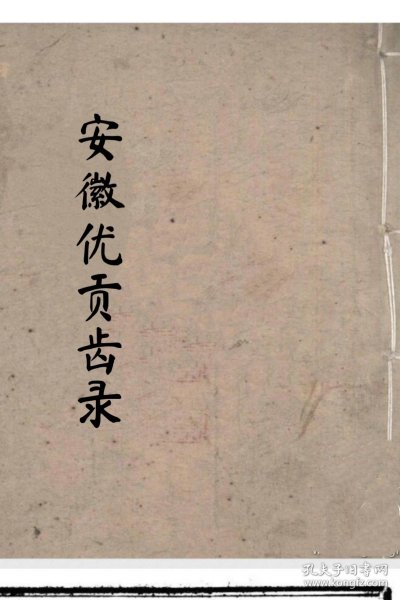 安徽优贡齿录
孔夫子旧书网
www.kongfz.com